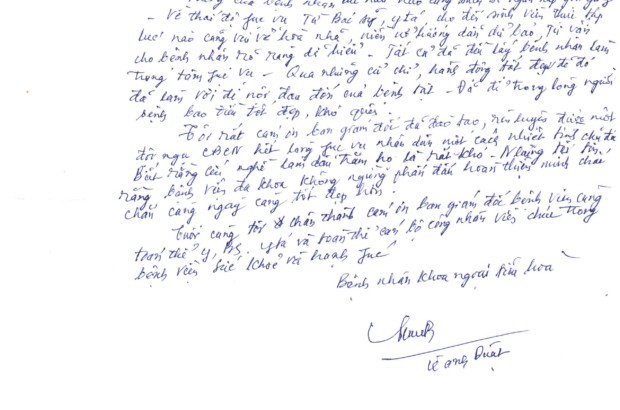 của bệnh nhân
- Về thái độ phục vụ Từ Bác sỹ, y tá, cho đến sinh viên thực tập
lúc nào cũng vui vẻ hòa nhã, niềm nở hướng dẫn chỉ bảo, tư vấn
cho bệnh nhân rõ ràng dễ hiểu - Tất cả đã đều lấy bệnh nhân làm
trung tâm fục vụ - Qua những cử chỉ, hành động tốt đẹp đó đã
đã làm vơi đi nỗi đau đớn của bệnh tật - Để đi trong lòng người
bệnh bao tiến tốt đẹp, khó quên.
Tôi rất cảm ơn ban giám đốc đã đào tạo, rèn luyện được một
đội ngũ CBCN hết lòng fục vụ nhân dân một cách nhiệt tình chu đáo
Biết rằng cái nghề làm dâu trăm họ là rất khó - Nhưng tôi tin
rằng bệnh viện đa khoa không ngừng phấn đấu hoàn thiện mình chắc
chắn càng ngày càng tốt đẹp hơn.
Cuối cùng tôi chân thành cảm ơn ban giám đốc bệnh viện cùng
toàn thể y, BS, y tá và toàn thể cán bộ công nhân viên chức trong
bệnh viện sức khoẻ và hạnh fúc!
Bệnh nhân khoa ngoại tiêu hoá